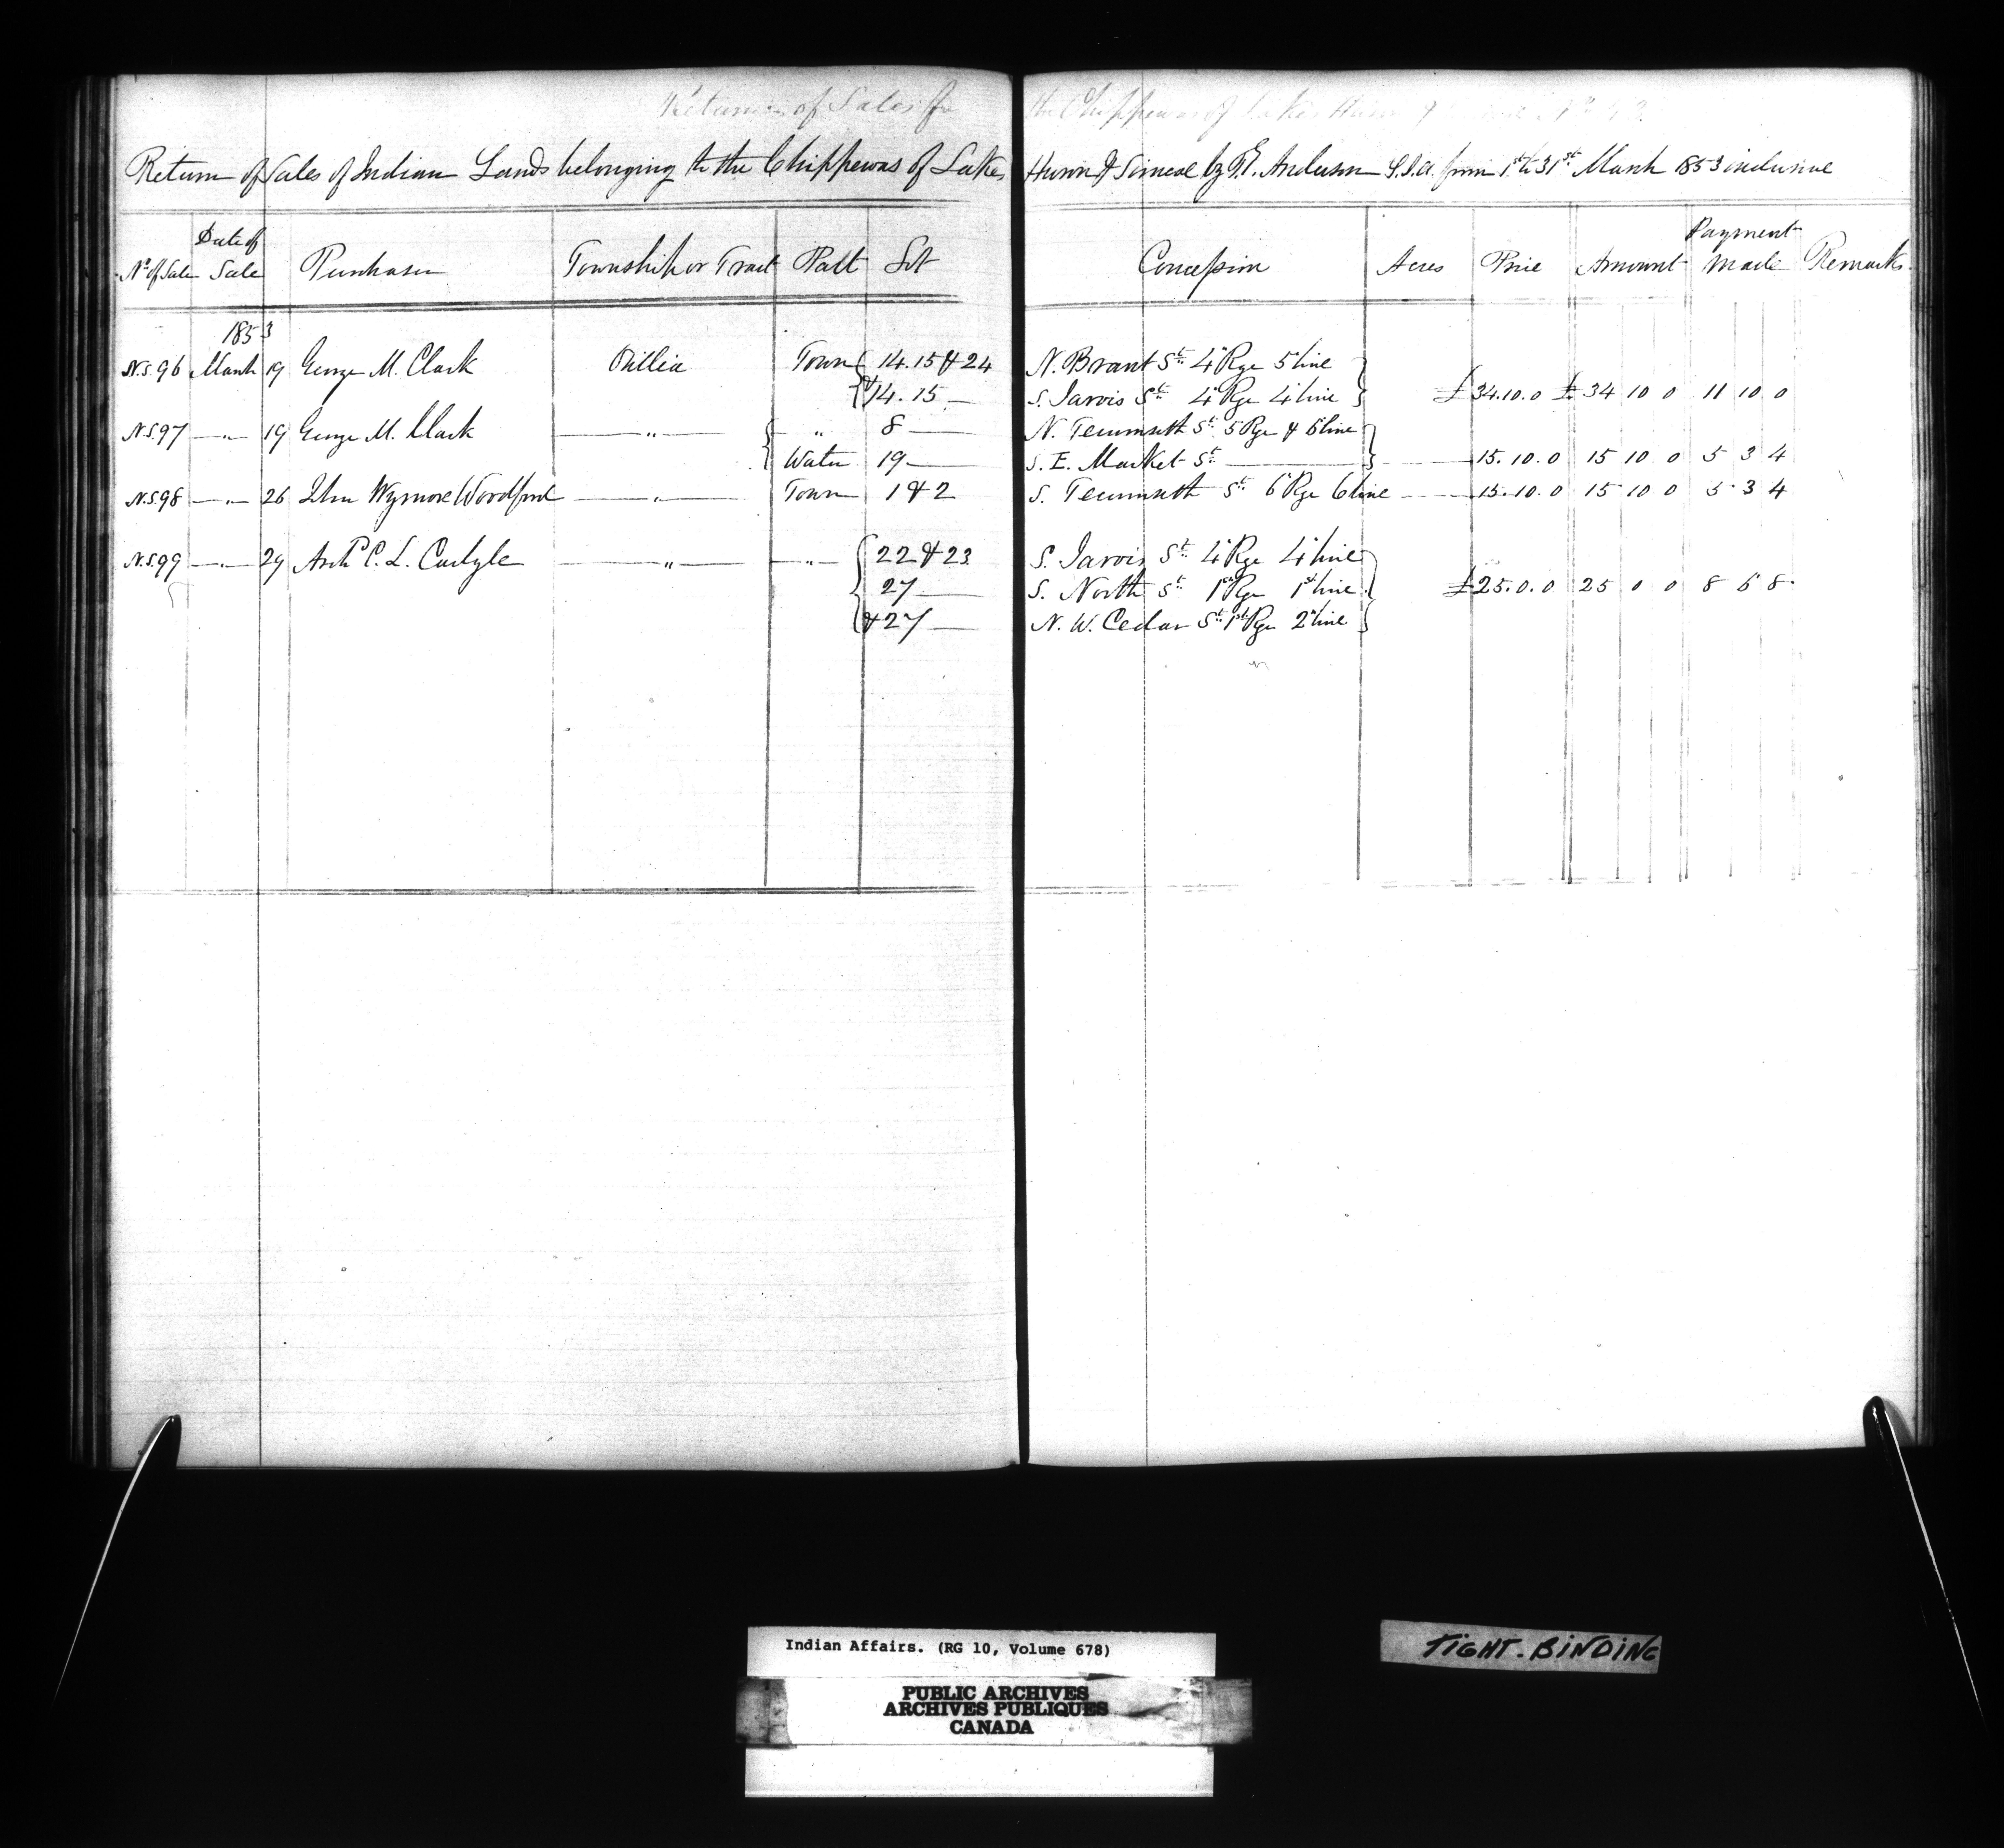 Return of Sales for the Chippewas of Lakes Huron &
Return of Sales of Indian Lands belonging to the Chippewas of Lakes Huron & Simcoe by T.G. Anderson S.I.A. from 1st to 31st March 1853 inclusive
No of Sale Date of Sale Purchaser Township or Tract Patt Lot Concession Acres Price Amount Payment Made Remarks
1853
N.S. 96 March 19 George M. Clark Orillia Town 14. 15 & 24 N. Brant St. 4th Rge 5th line
& 14. 15 S. Jarvis St. 4th Rge 4th line £34.10.0 £34 10 0 11 10 0
N.S. 97 " 19 George M. Clark " " 8 N. Tecumseth St. 5 Rge & 6th line
Water 19 S. E. Market St. 15.10.0 15 10 0 5 3 4
N.S. 98 " 26 John Wymore Woodford " Town 1 & 2 S. Tecumseth St. 6th Rge 6 line 15.10.0 15 10 0 5 3 4
N.S. 99 " 29 Archd C. L. Carlyle " " 22 & 23 S. Jarvis St. 4th Rge 4th line
27 S. North St. 1st Rge 1st line £25.0.0 25 0 0 8 6 8
& 27 N. W. Cedar St. 1st Rge 2d line
Indian Affairs. (RG 10, Volume 678)
PUBLIC ARCHIVES
ARCHIVES PUBLIQUES
CANADA
TIGHT. BINDING